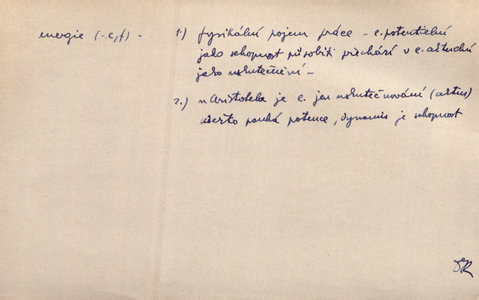 energie (-e, f) - 1.) fysikální pojem práce - e. potenciální
jako schopnost působiti přechází v e. aktuální
jako uskutečnění -
2.) u Aristotela je e. jen uskutečňování (actus)
pouhá potence, dynamis je schopnost
SR